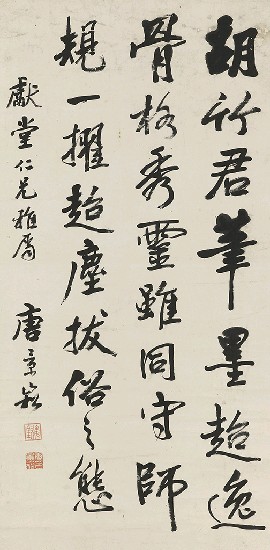 胡竹君筆墨超逸
骨格秀靈雖同守師
規一擢超塵拔俗之態
獻堂仁兄雅屬
唐景崧